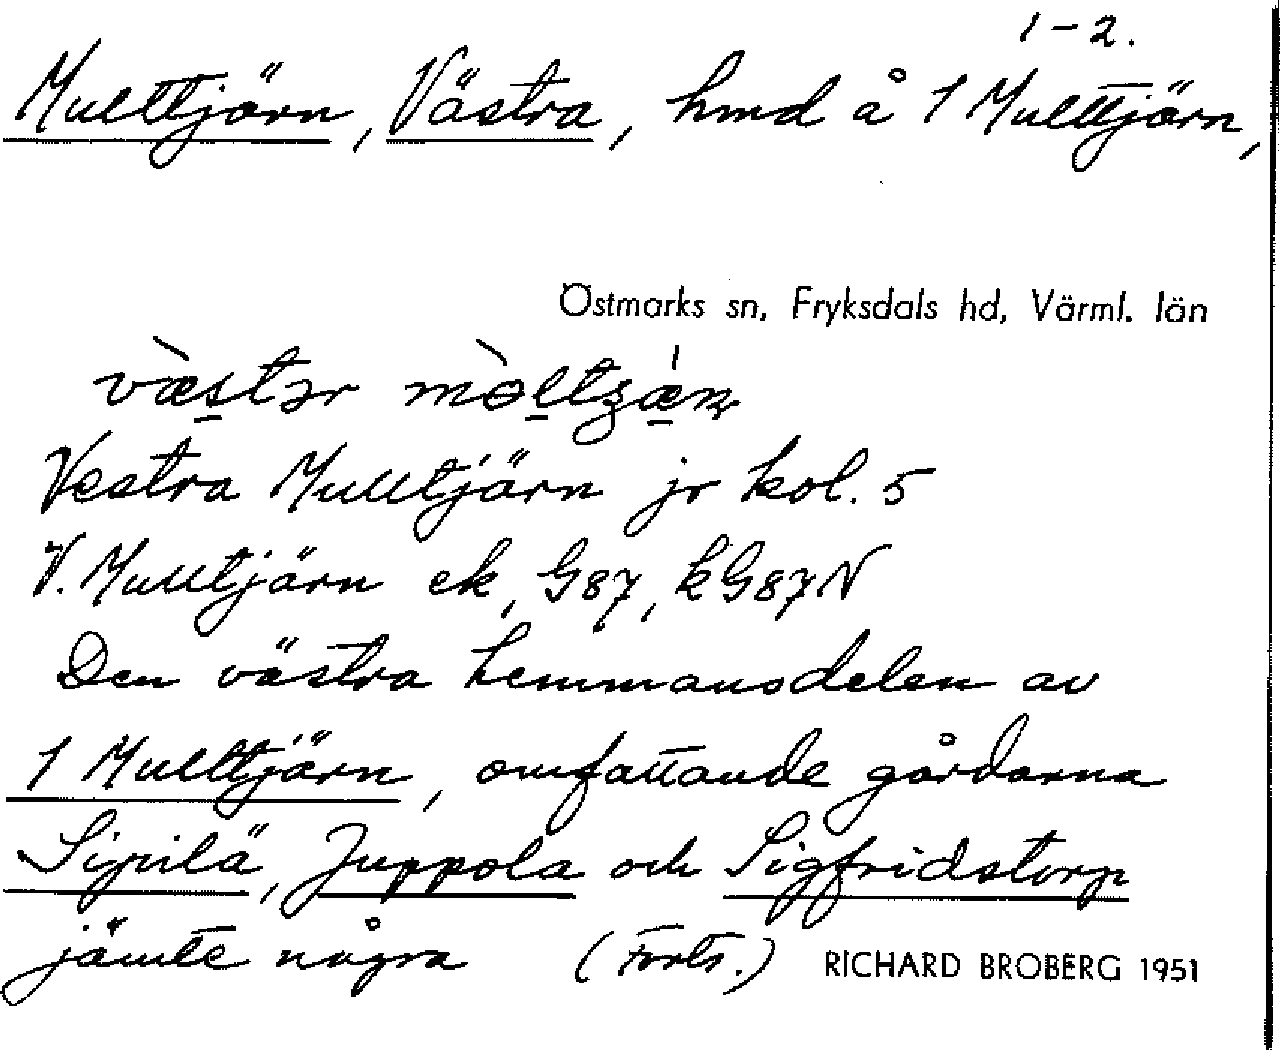 1-2.
Multtjärn, Västra, hmd å 1 Multtjärn,
Östmarks sn, Fryksdals hd, Värml. län
Vestra Mulltjärn jr kol. 5
V. Mulltjärn ek, G87, kG87N
Den västra hemmansdelen av
1 Multtjärn, omfattande gårdarna
Sipilä, Juppola och Sigfridstorp
jämte några (Forts.) RICHARD BROBERG 1951